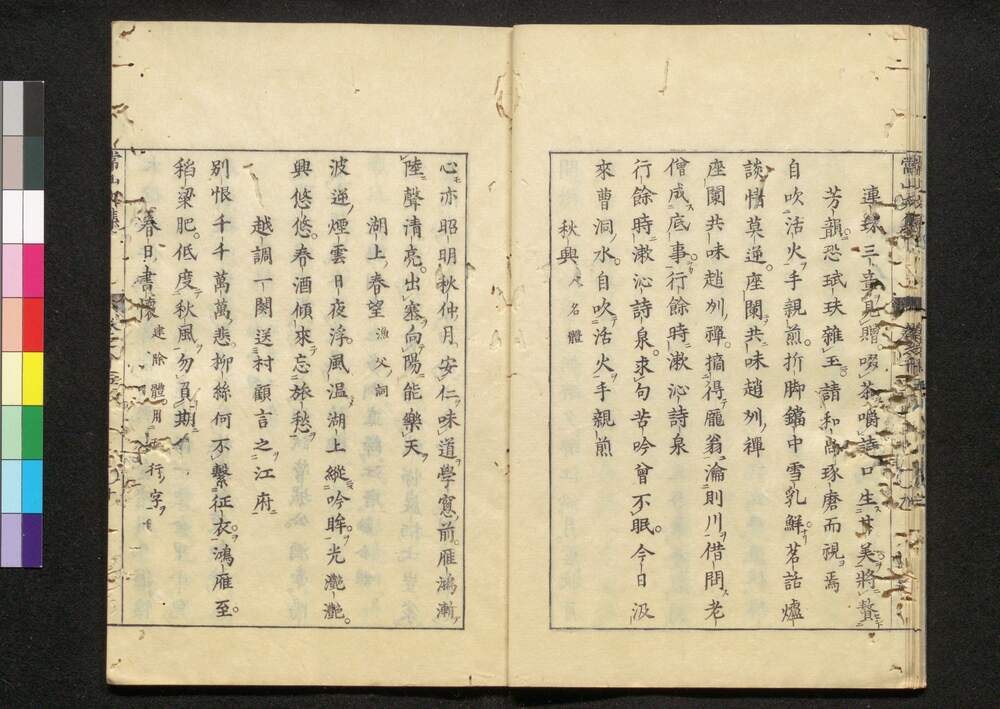 連珠三章見贈啜茶嚼詩口生其美將贅
芳韻恐珷玞雜玉請和尚琢磨而視焉
自吹活火手親煎折脚鐺中雪乳鮮茗話爐
談情莫逆座闌共味趙州禪
座闌共味趙州禪摘得龐翁瀹則川借問老
僧成底事行餘時漱沁詩泉
行餘時漱沁詩泉求句苦吟曾不眠今日汲
來曹洞水自吹活火手親煎
秋興 人名體
心亦昭明秋仲月安仁味道學窓前雁鴻漸
陸聲清亮出塞向陽能樂天
湖上春望 漁父詞
波逆煙雲日夜浮風温湖上縱吟眸光灔灔
興悠悠春酒傾來忘旅愁
越調一闋送村顧言之江府
別恨千千萬萬悲柳絲何不繫征衣鴻雁至
稻梁肥低度秋風勿負期
春日書懷 建除體用五行字